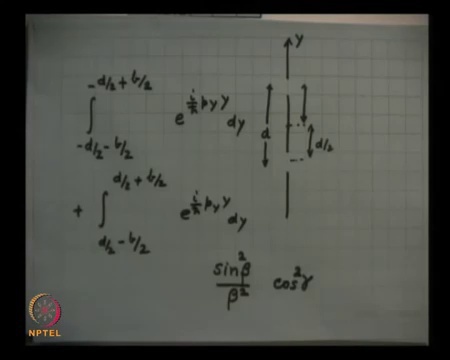 -d/2 + b/2
∫ e^{\frac{i}{ħ} p_y y} dy
-d/2 - b/2
d/2 + b/2
+ ∫ e^{\frac{i}{ħ} p_y y} dy
d/2 - b/2
\frac{sin^2 β}{β^2} cos^2 γ
y
d
d/2
NPTEL